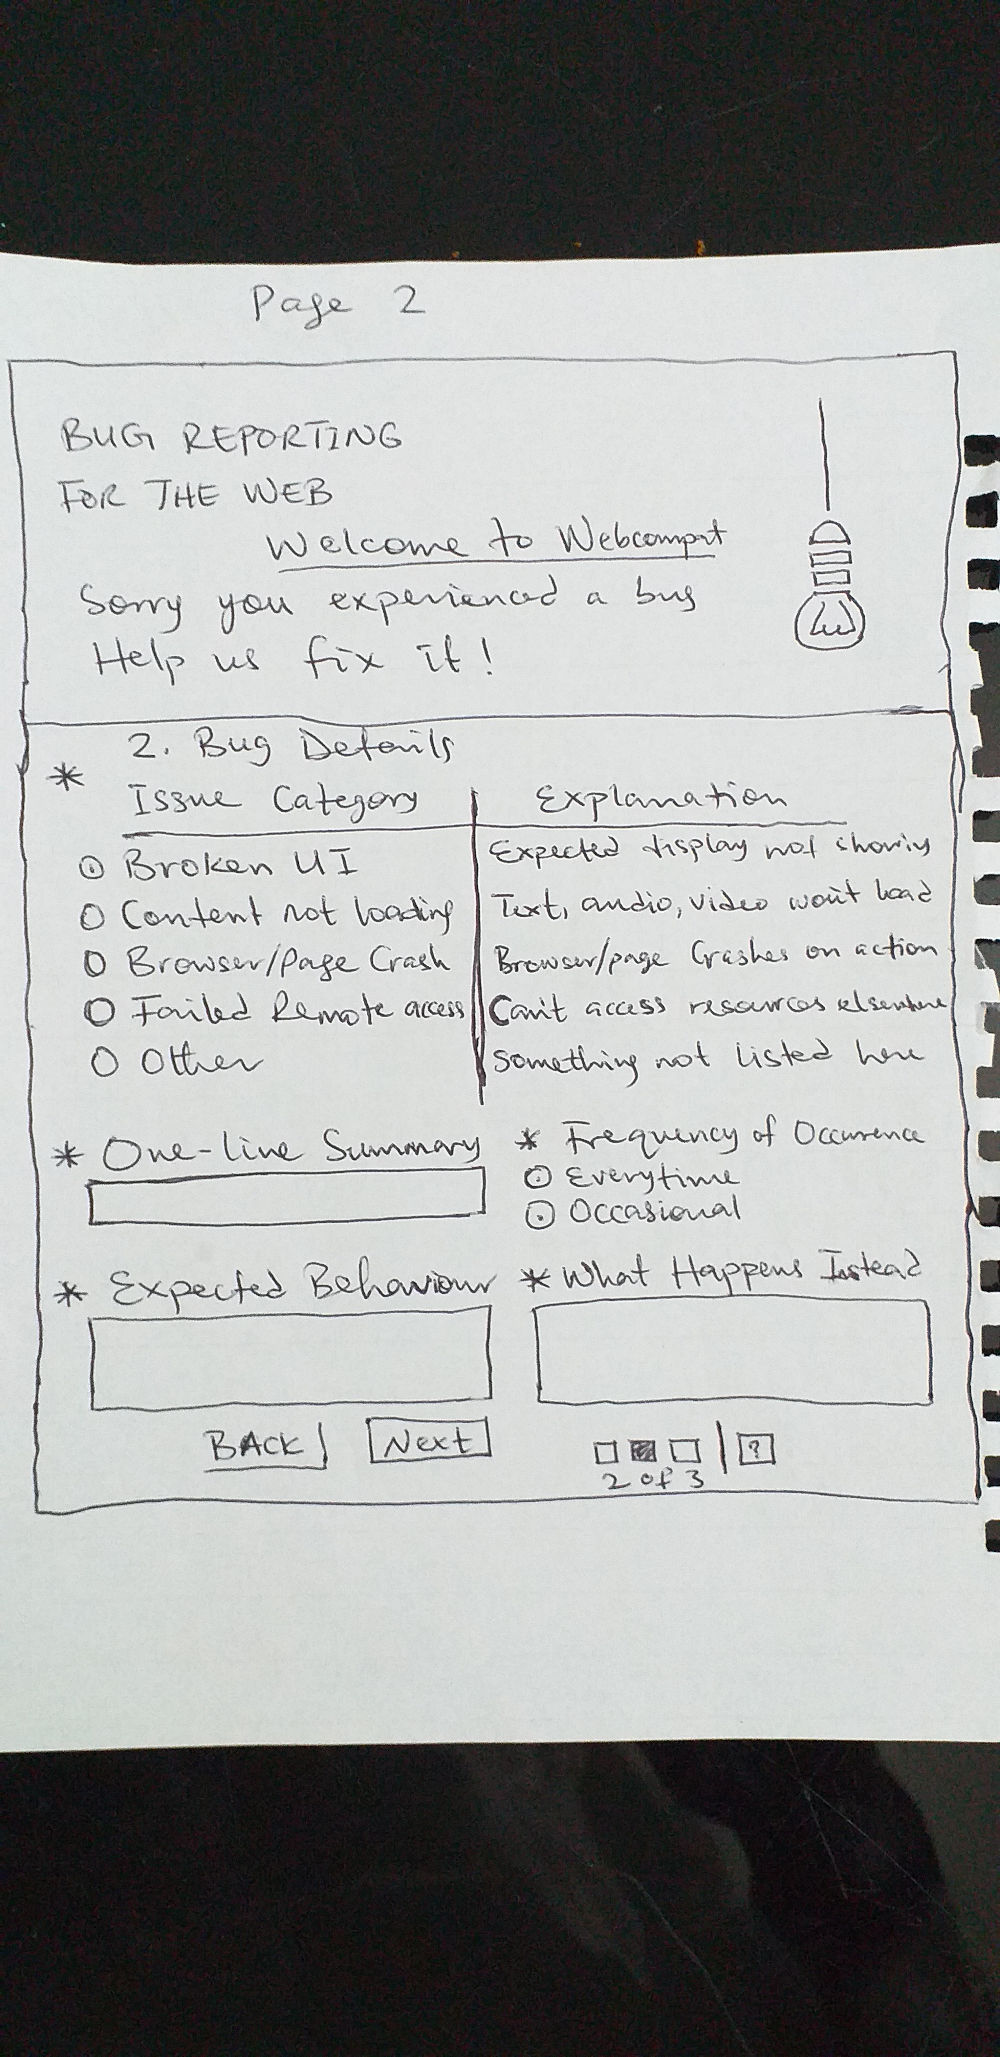 Page 2
BUG REPORTING
FOR THE WEB
Welcome to Webcompat
Sorry you experienced a bug
Help us fix it!
2. Bug Details
* Issue Category | Explanation
Broken UI | Expected display not showing
Content not loading | Text, audio, video won't load
Browser/Page Crash | Browser/page Crashes on action
Failed Remote access | Can't access resources elsewhere
Other | Something not listed here
* One-line Summary
* Frequency of Occurrence
Everytime
Occasional
* Expected Behaviour
* What Happens Instead
BACK Next
2 of 3 | ?